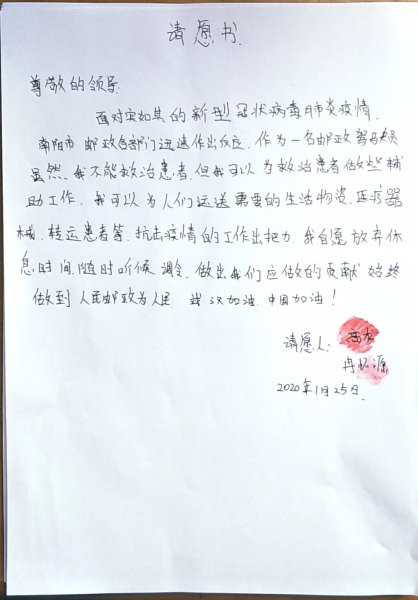 请愿书
尊敬的领导:
面对突如其来的新型冠状病毒肺炎疫情,
南阳市邮政各部门迅速作出反应,作为一名邮政驾驶员
虽然,我不能救治患者,但我可以为救治患者做些辅
助工作,我可以为人们运送需要的生活物资,医疗器
械,转运患者等,抗击疫情的工作出把力,我自愿放弃休
息时间,随时听候调令,做出我们应做的贡献,始终
做到人民邮政为人民,武汉加油,中国加油!
请愿人:高
冉 源
2020年1月25日.